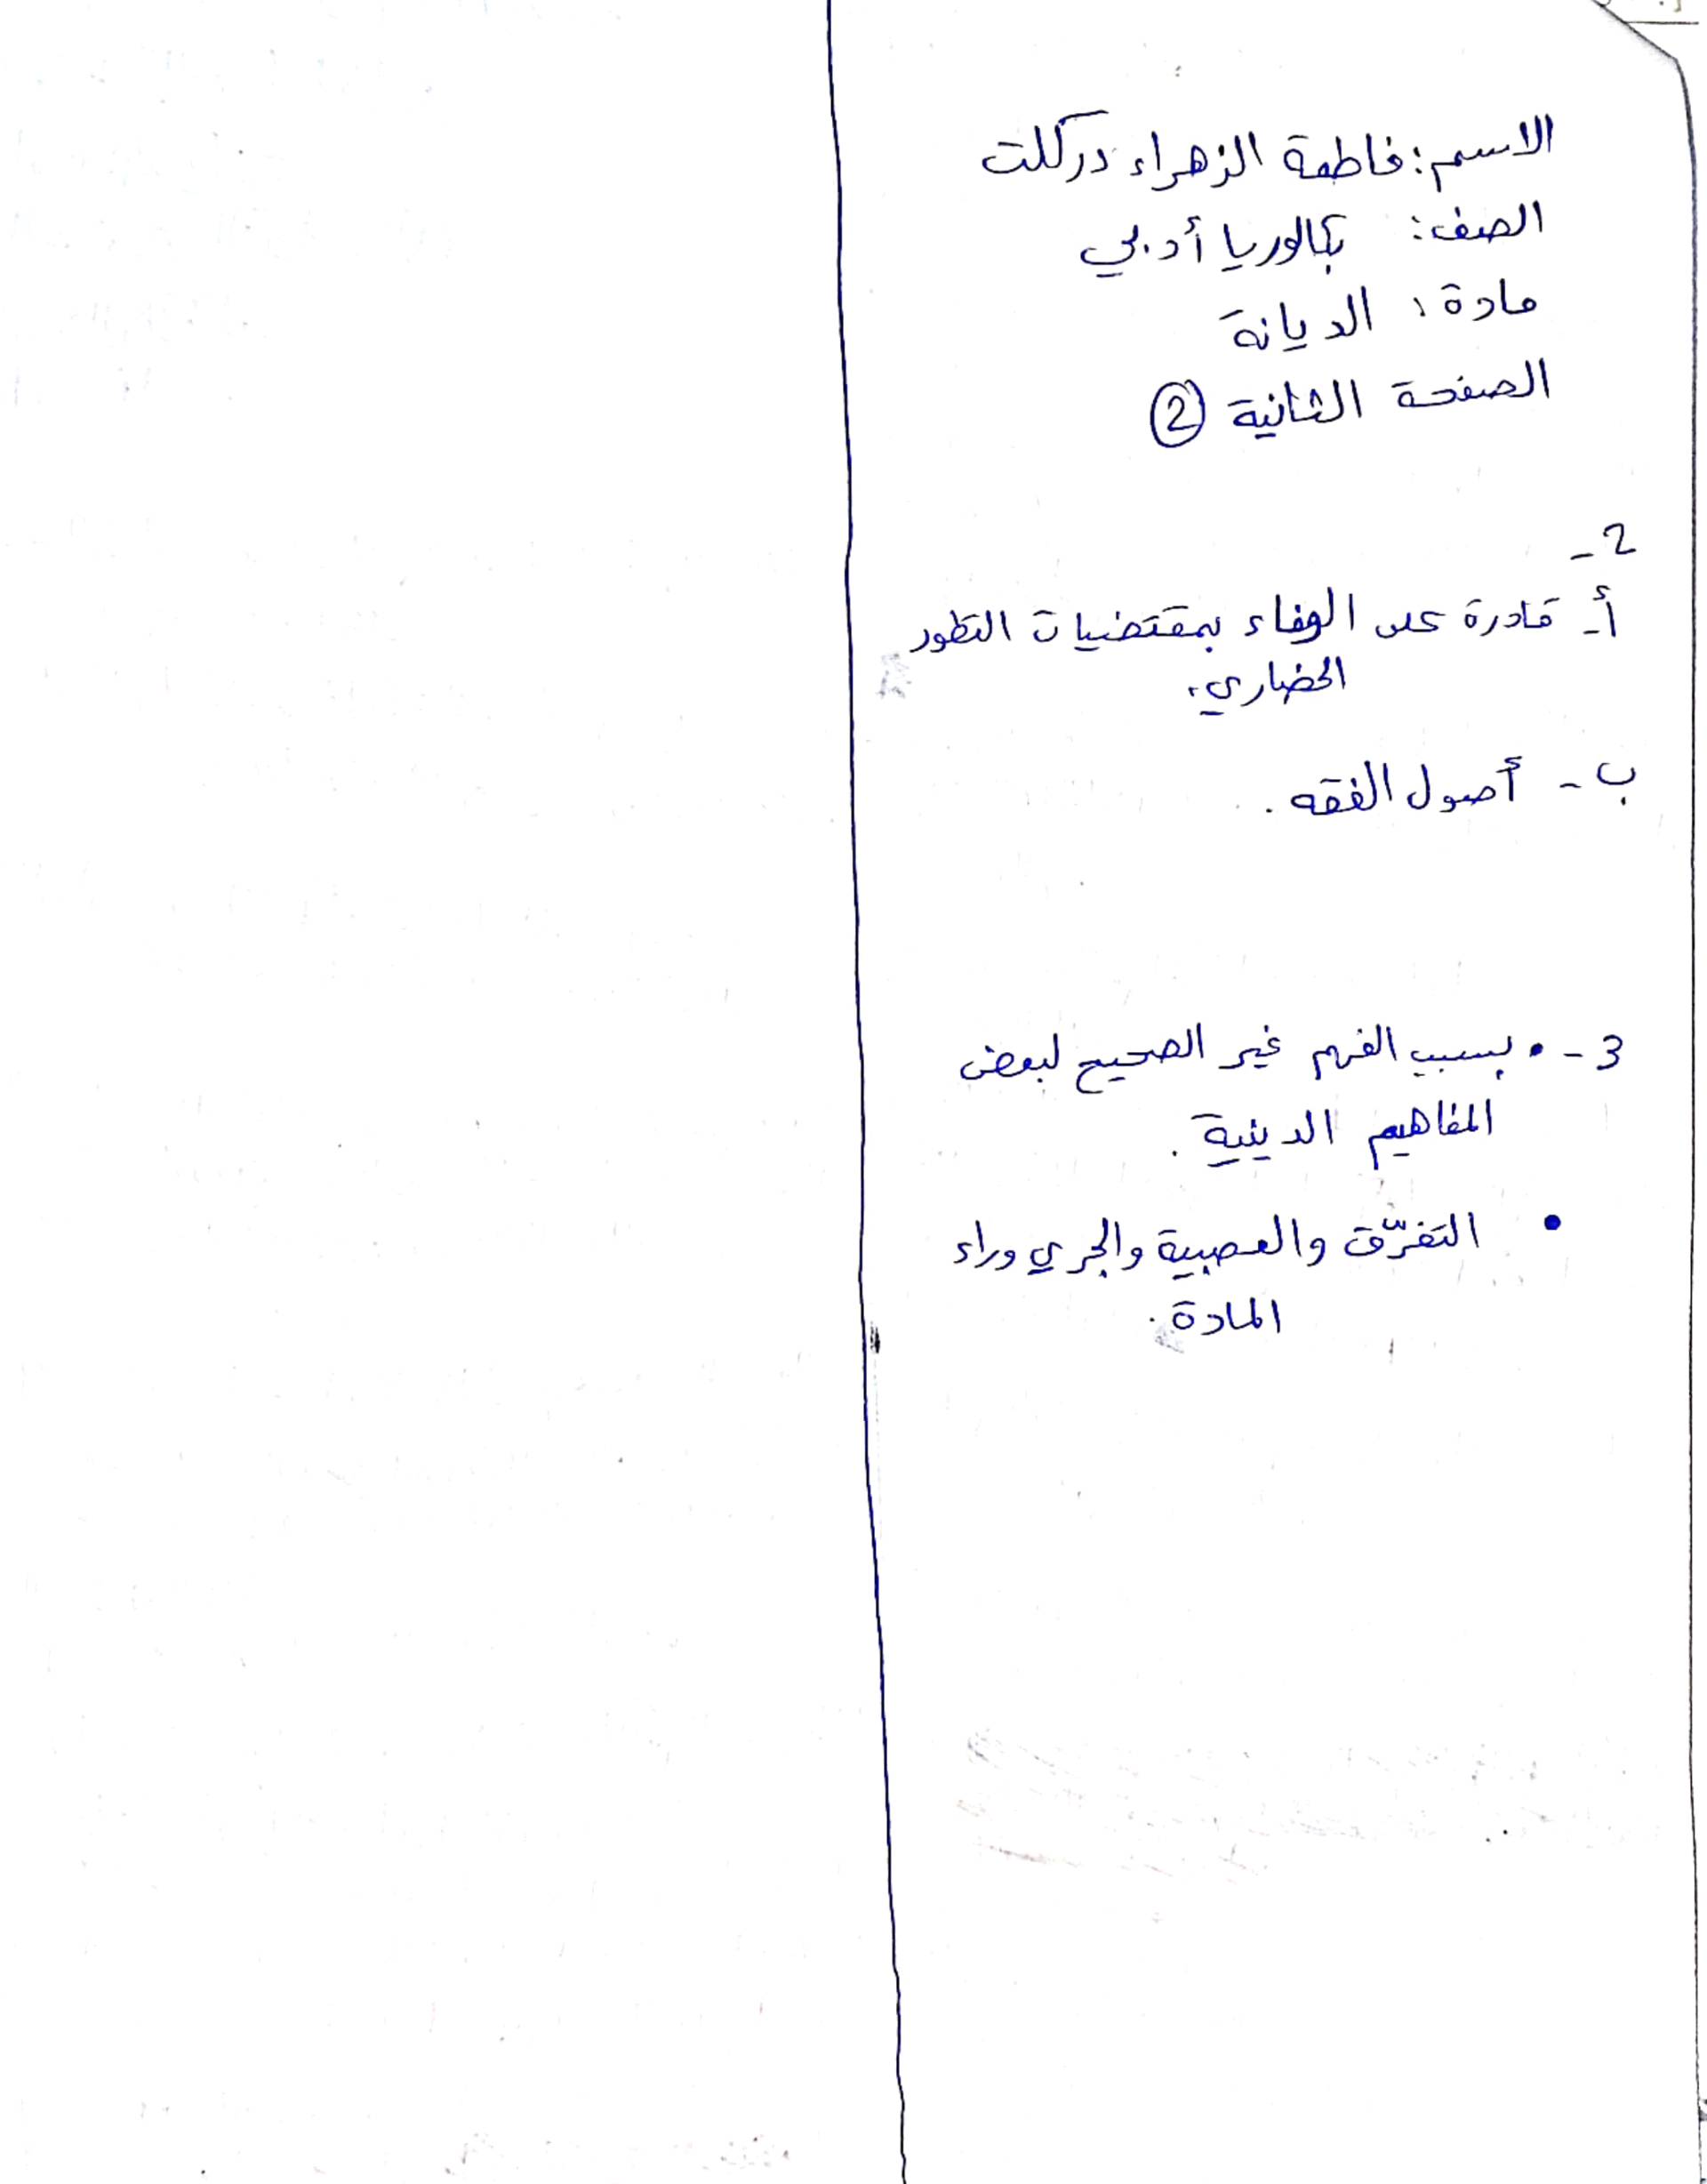 الاسم: فاطمة الزهراء دركلت
الصف: بكالوريا أدبي
مادة: الديانة
الصفحة الثانية 2
2-
أ- قادرة على الوفاء بمقتضيات التطور
الحضاري.
ب- أصول الفقه.
3- • بسبب الفهم غير الصحيح لبعض
المفاهيم الدينية.
• التفرّق والعصبية والجري وراء
المادة.